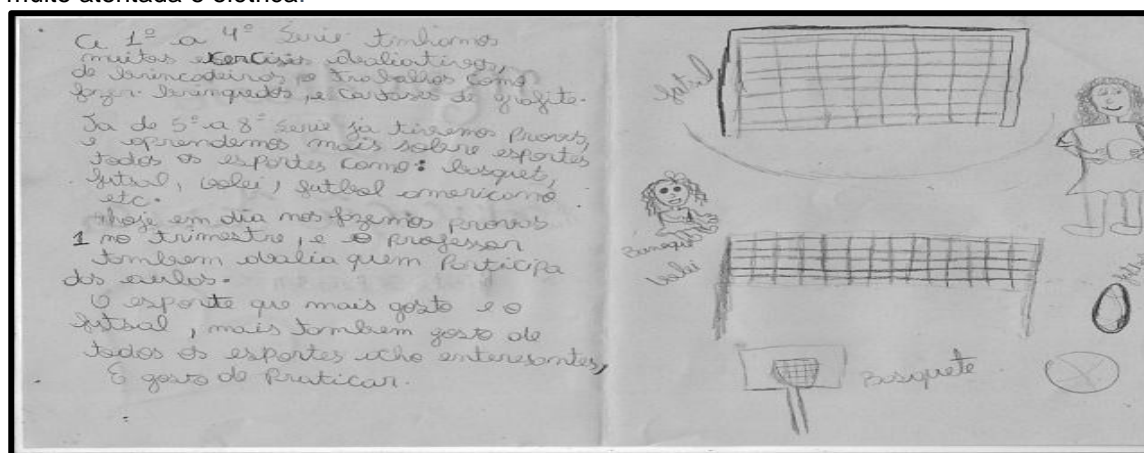 muito atentada e elétrica.
A 1º a 4º Serie tinhamos
muitos exercisis avaliativos,
de brincadeiras, e trabalhos como
fazer brinquedos, e cartases de grafite.
Ja de 5º a 8º Serie ja tivemos provas,
e aprendemos mais sobre esportes
todos os esportes como: basquet,
futsal, volei, futbol americano
etc.
Hoje em dia nos fazemos provas
1 no trimestre, e o professor
tambem avalia quem Participa
das aulas.
O esporte que mais gosto e o
futsal, mais tambem gosto de
todos os esportes acho enteresantes,
E gosto de Praticar.
futsal
volei
Basquete